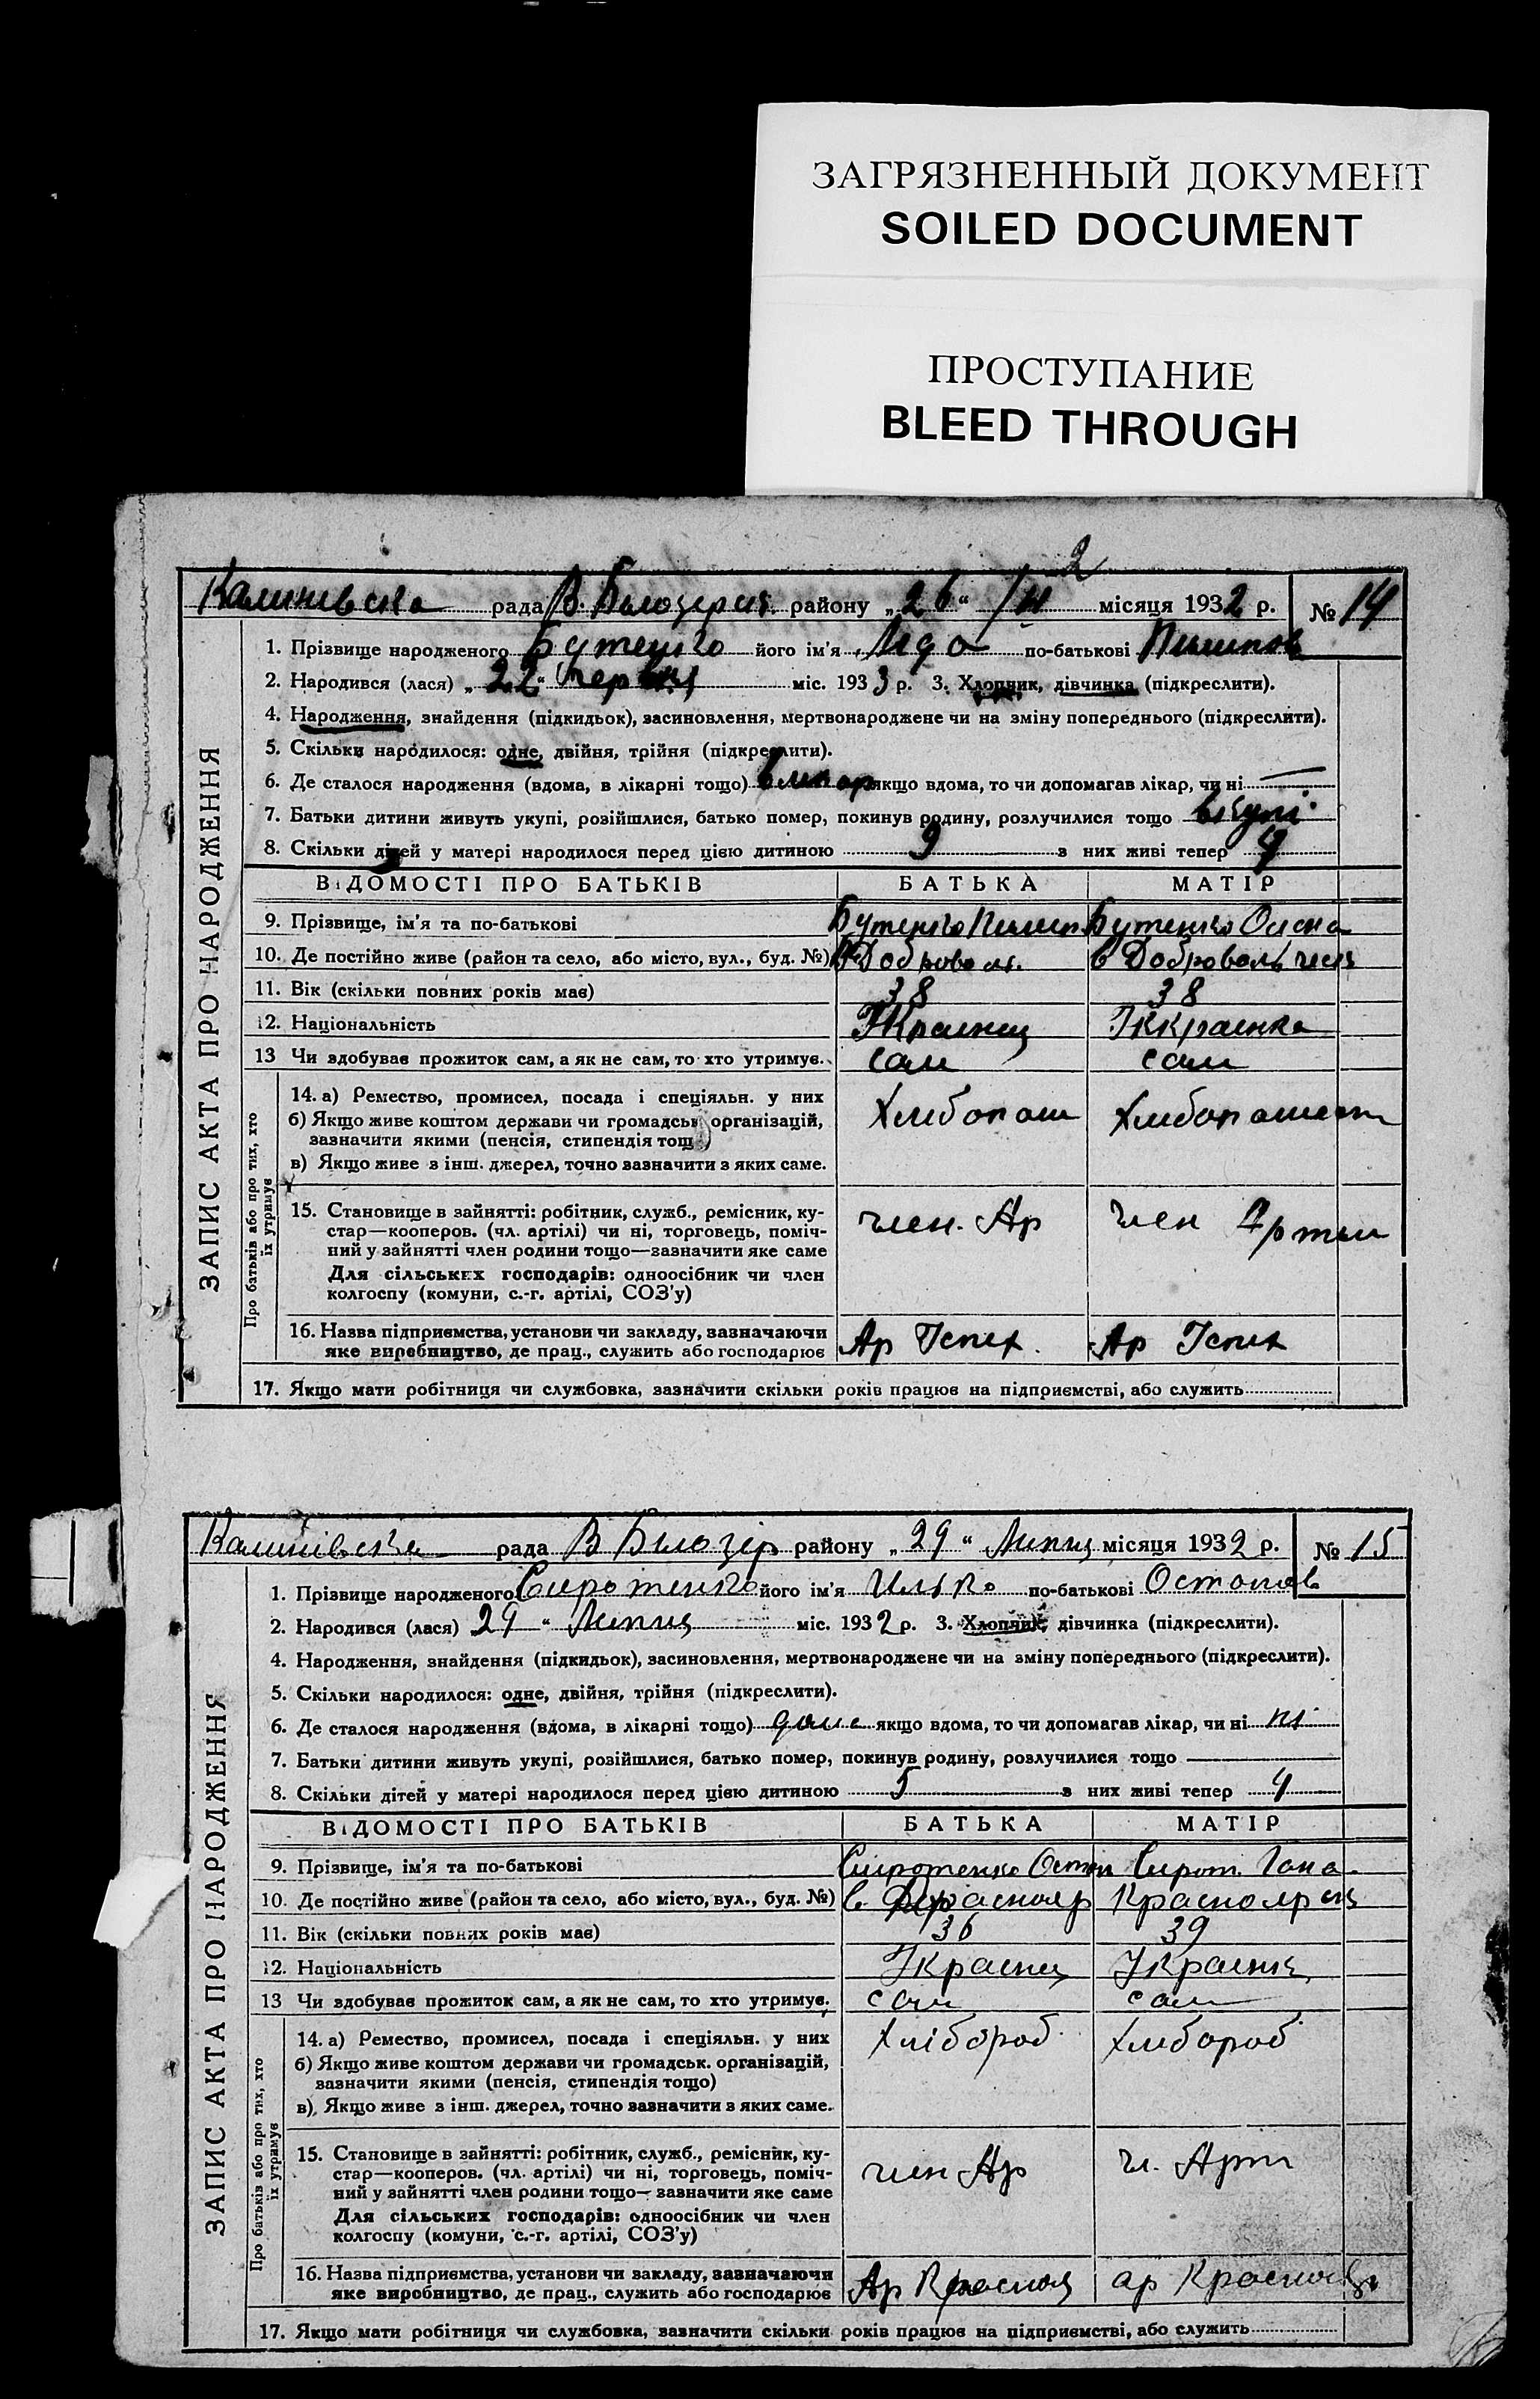 ЗАГРЯЗНЕННЫЙ ДОКУМЕНТ
SOILED DOCUMENT
ПРОСТУПАНИЕ
BLEED THROUGH
2
Калинівська рада В. Білозерск. району „26“ місяця 1932 р. № 14
ЗАПИС АКТА ПРО НАРОДЖЕННЯ
1. Прізвище народженого Бутенко його ім'я Лида по-батькові Пилипов
2. Народився (лася) „22“ червця міс. 1933 р. 3. Хлопчик, дівчинка (підкреслити).
4. Народження, знайдення (підкидьок), засиновлення, мертвонароджене чи на зміну попереднього (підкреслити).
5. Скільки народилося: одне, двійня, трійня (підкреслити).
6. Де сталося народження (вдома, в лікарні тощо) в ликар якщо вдома, то чи допомагав лікар, чи ні —
7. Батьки дитини живуть укупі, розійшлися, батько помер, покинув родину, розлучилися тощо вкупі
8. Скільки дітей у матері народилося перед цією дитиною 9 з них живі тепер
ВІДОМОСТІ ПРО БАТЬКІВ БАТЬКА МАТІР
9. Прізвище, ім'я та по-батькові Бутенко Пилип Бутенко Олена
10. Де постійно живе (район та село, або місто, вул., буд. №) Доброволь. в Доброволь
11. Вік (скільки повних років має) 38 38
12. Національність Украинец Уккраинка
13 Чи здобуває прожиток сам, а як не сам, то хто утримує. сам сам
Про батьків або про тих, хто їх утримує
14. а) Ремество, промисел, посада і спеціяльн. у них Хлибопаш Хлибопашест
б) Якщо живе коштом держави чи громадськ організацій,
зазначити якими (пенсія, стипендія тощ )
в) Якщо живе з інш. джерел, точно зазначити з яких саме.
15. Становище в зайнятті: робітник, служб., ремісник, ку-
стар—кооперов. (чл. артілі) чи ні, торговець, поміч- член. Ар член Артил
ний у зайнятті член родини тощо—зазначити яке саме
Для сільських господарів: одноосібник чи член
колгоспу (комуни, с.-г. артілі, СОЗ'у)
16. Назва підприємства, установи чи закладу, зазначаючи
яке виробництво, де прац., служить або господарює Ар Успех. Ар Успех
17. Якщо мати робітниця чи службовка, зазначити скільки років працює на підприємстві, або служить
Калинівська рада В Білозір району „29“ Липця місяця 1932 р. № 15
ЗАПИС АКТА ПРО НАРОДЖЕННЯ
1. Прізвище народженого Сиротенко його ім'я Илько по-батькові Остапов
2. Народився (лася) 29 „ Липця міс. 1932 р. 3. Хлопчик, дівчинка (підкреслити).
4. Народження, знайдення (підкидьок), засиновлення, мертвонароджене чи на зміну попереднього (підкреслити).
5. Скільки народилося: одне, двійня, трійня (підкреслити).
6. Де сталося народження (вдома, в лікарні тощо) дома якщо вдома, то чи допомагав лікар, чи ні ні
7. Батьки дитини живуть укупі, розійшлися, батько помер, покинув родину, розлучилися тощо —
8. Скільки дітей у матері народилося перед цією дитиною 5 з них живі тепер 4
ВІДОМОСТІ ПРО БАТЬКІВ БАТЬКА МАТІР
9. Прізвище, ім'я та по-батькові Сиротенко Остап Сирот. Гана
10. Де постійно живе (район та село, або місто, вул., буд. №) с. Краснояр Краснояр
11. Вік (скільки повних років має) 36 39
12. Національність Украинец Украинк
13 Чи здобуває прожиток сам, а як не сам, то хто утримує. сам сам
Про батьків або про тих, хто їх утримує
14. а) Ремество, промисел, посада і спеціяльн. у них Хлібороб Хлибороб
б) Якщо живе коштом держави чи громадськ. організацій,
зазначити якими (пенсія, стипендія тощо)
в) Якщо живе з інш. джерел, точно зазначити з яких саме.
15. Становище в зайнятті: робітник, служб., ремісник, ку-
стар—кооперов. (чл. артілі) чи ні, торговець, поміч- член Ар чл. Арт
ний у зайнятті член родини тощо— зазначити яке саме
Для сільських господарів: одноосібник чи член
колгоспу (комуни, с.-г. артілі, СОЗ'у)
16. Назва підприємства, установи чи закладу, зазначаючи
яке виробництво, де прац., служить або господарює Ар ар
17. Якщо мати робітниця чи службовка, зазначити скільки років працює на підприємстві, або служить